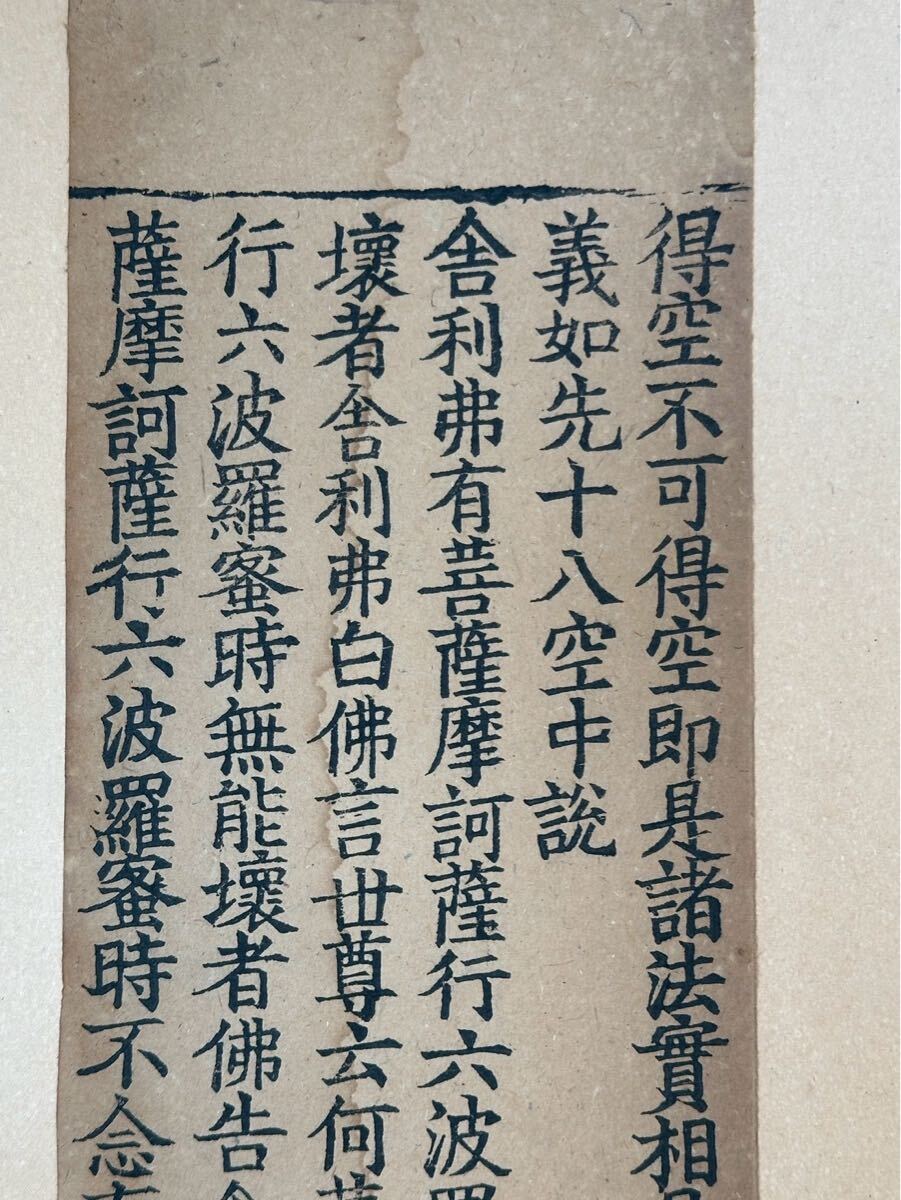 得空不可得空即是諸法實相
義如先十八空中說
舍利弗有菩薩摩訶薩行六波
壞者舍利弗白佛言世尊云何
行六波羅蜜時無能壞者佛告
薩摩訶薩行六波羅蜜時不念